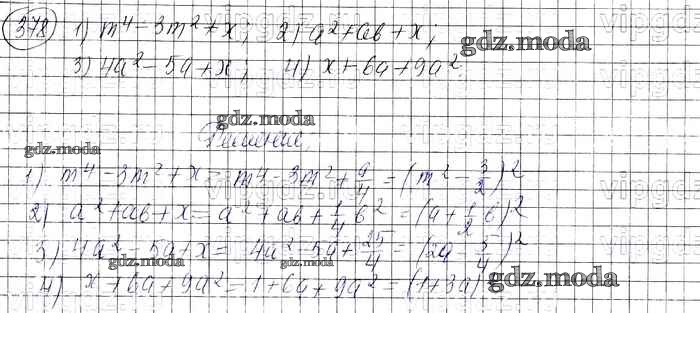 378 1) m⁴ - 3m² + x; 2) a² + ab + x;
gdz.moda
3) 4a² - 5a + x; 4) x + 6a + 9a².
gdz.moda
Решение.
gdz.moda
1) m⁴ - 3m² + x = m⁴ - 3m² + 9/4 = (m² - 3/2)²
2) a² + ab + x = a² + ab + 1/4 b² = (a + 1/2 b)²
3) 4a² - 5a + x = 4a² - 5a + 25/4 = (2a - 5/4)²
gdz.moda gdz.moda gdz.moda
4) x + 6a + 9a² = 1 + 6a + 9a² = (1 + 3a)